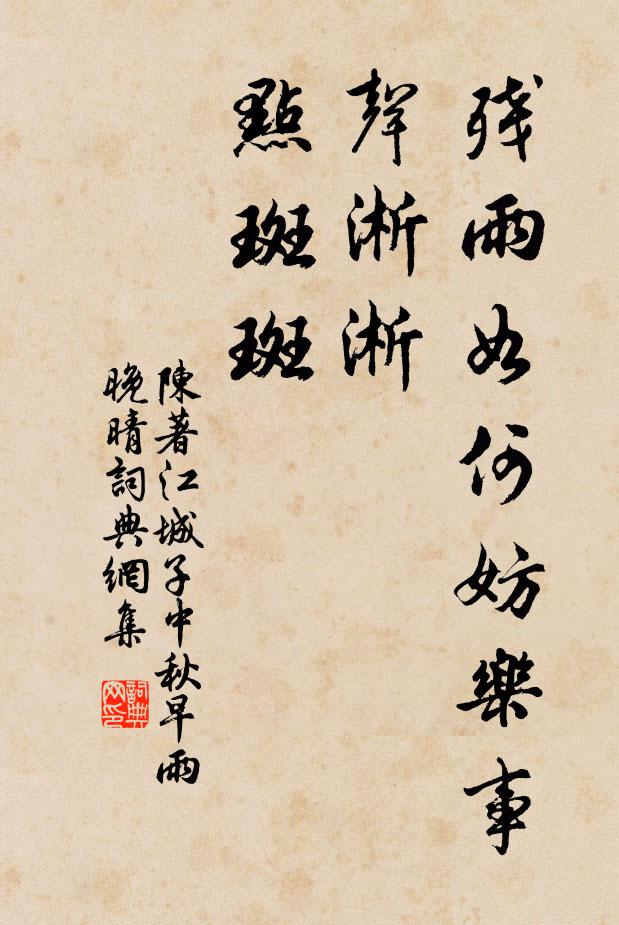 残雨如何妨樂事
聲淅淅
點斑斑
陳著江城子中秋早雨
晚晴詞典網集
詞典网印